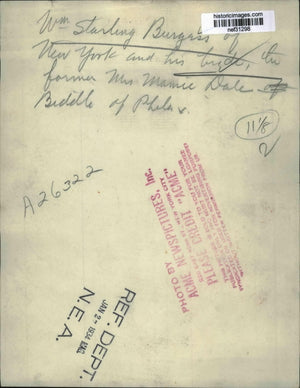 historicimages.com
nef31298
Wm Starling Burgess of
New York and his bride, the
former Mrs Mamie Dale
Biddle of Phila.
11/8
2
A26322
PHOTO BY
ACME NEWSPICTURES, Inc.
NEW YORK CITY
PLEASE CREDIT "ACME"
REF. DEPT.
JAN 2- 1934
N. E. A.